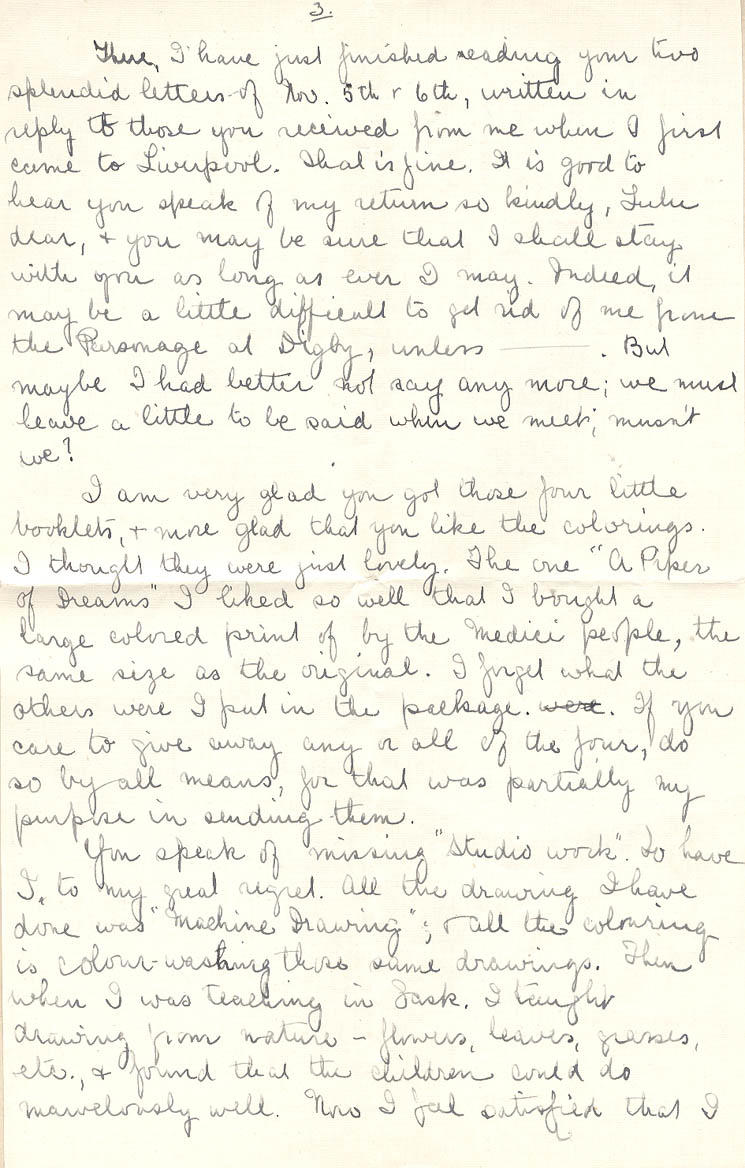 3.
There, I have just finished reading your two
splendid letters of Nov. 5th & 6th, written in
reply to those you received from me when I first
came to Liverpool. That is fine. It is good to
hear you speak of my return so kindly, Lulu
dear, & you may be sure that I shall stay
with you as long as ever I may. Indeed, it
may be a little difficult to get rid of me from
the Parsonage at Digby, unless ———. But
maybe I had better not say any more; we must
leave a little to be said when we meet; musn't
we?
I am very glad you got those four little
booklets, & more glad that you like the colorings.
I thought they were just lovely. The one "A Piper
of Dreams" I liked so well that I bought a
large colored print of by the Medici people, the
same size as the original. I forget what the
others were I put in the package. were. If you
care to give away any or all of the four, do
so by all means, for that was partially my
purpose in sending them.
You speak of missing "Studio work". So have
I, to my great regret. All the drawing I have
done was "Machine Drawing"; & all the colouring
is colour-washing those same drawings. Then
when I was teaching in Sask. I taught
drawing from nature - flowers, leaves, grasses,
etc., & found that the children could do
marvelously well. Now I feel satisfied that I